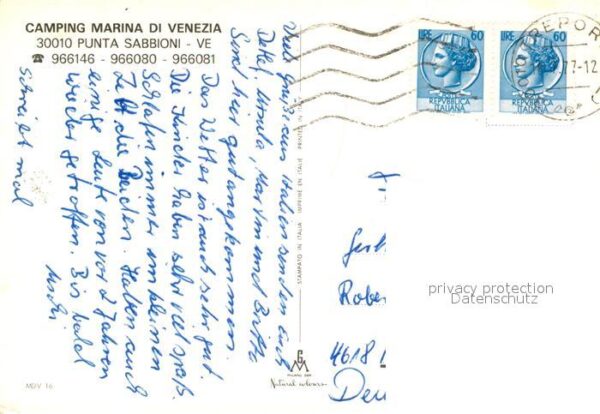 CAMPING MARINA DI VENEZIA
30010 PUNTA SABBIONI - VE
☎ 966146 - 966080 - 966081
Viele Grüße aus Italien senden euch
Detlef, Ursula, Martin und Britta
Sind hier gut angekommen.
Das Wetter ist auch sehr gut.
Die Kinder haben sehr viel Spaß.
Schlafen immer im kleinen
Zelt die Beiden. Haben auch
einige Leute von vor 2 Jahren
wieder getroffen. Bis bald
Uschi
schreibt mal
MDV 16
STAMPATO IN ITALIA IMPRIMÉ EN ITALIE PRINTED IN
Natural colours
LIRE 60
REPUBBLICA
ITALIANA
LIRE 60
REPUBBLICA
ITALIANA
REPOR
77-12
Rober
4618
privacy protection
Datenschutz